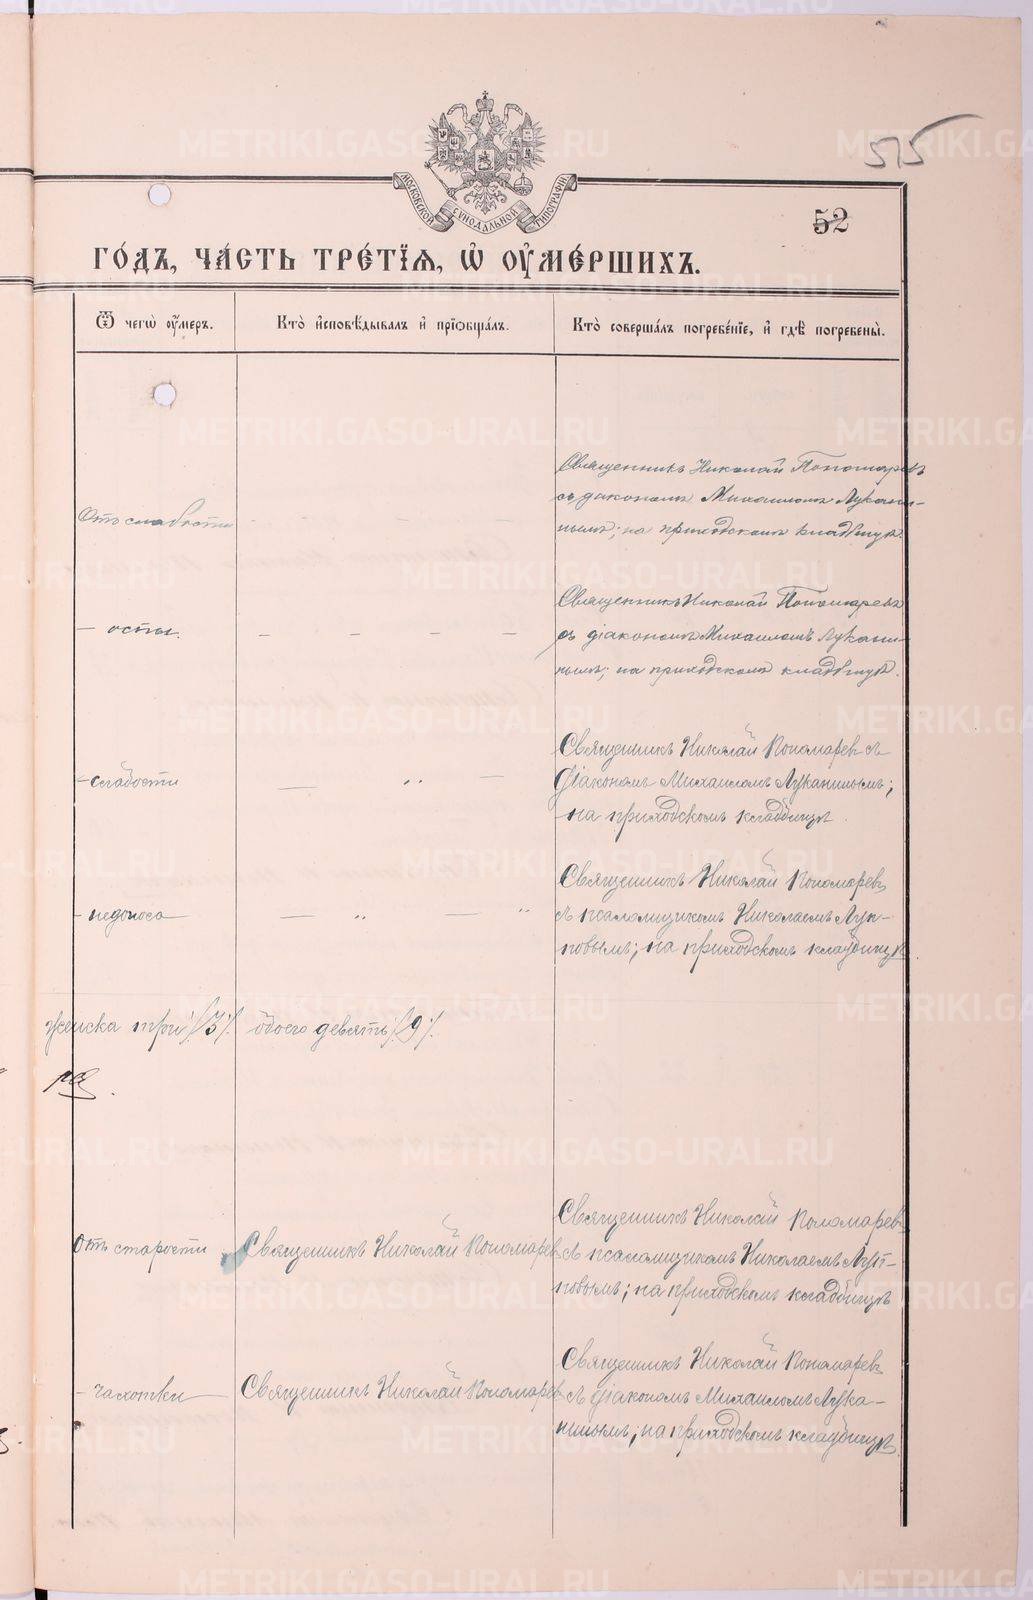 515
МОСКОВСКОЙ СѴНОДАЛЬНОЙ ТИПОГРАФІИ
52
ГО́ДЪ, ЧА́СТЬ ТРЕ́ТІѦ, Ѽ ОУ҆МЕ́РШИХЪ.
Ѿ чегѡ̀ оу҆́меръ.
Кто̀ и҆сповѣ́дывалъ и҆ прїѡбща́лъ.
Кто̀ соверша́лъ погребе́нїе, и҆ гдѣ̀ погребены̀.
Отъ слабости
Священникъ Николай Пономаревъ
съ діакономъ Михаиломъ Лукани-
нымъ; на приходскомъ кладбищѣ.
— оспы.
Священникъ Николай Пономаревъ
съ діакономъ Михаиломъ Лукани-
нымъ; на приходскомъ кладбищѣ.
— слабости
Священникъ Николай Пономаревъ съ
Діакономъ Михаиломъ Луканинымъ;
на приходскомъ кладбищѣ.
— недоноса
Священникъ Николай Пономаревъ
съ псаломщикомъ Николаемъ Луп-
повымъ; на приходскомъ кладбищѣ.
женска три /3/. обоего девять /9/.
Отъ старости
Священникъ Николай Пономаревъ
Священникъ Николай Пономаревъ
съ псаломщикомъ Николаемъ Луп-
повымъ; на приходскомъ кладбищѣ
— чахотки
Священникъ Николай Пономаревъ
Священникъ Николай Пономаревъ
съ діакономъ Михаиломъ Лука-
нинымъ; на приходскомъ кладбищѣ.
METRIKI.GASO-URAL.RU